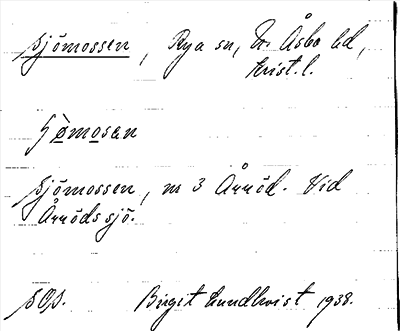 Sjömossen, Rya sn, N. Åsbo hd,
Krist. l.
sjömossen, nr 3 Årröd. Vid
Årröds sjö.
Birgit Lundkvist 1938.